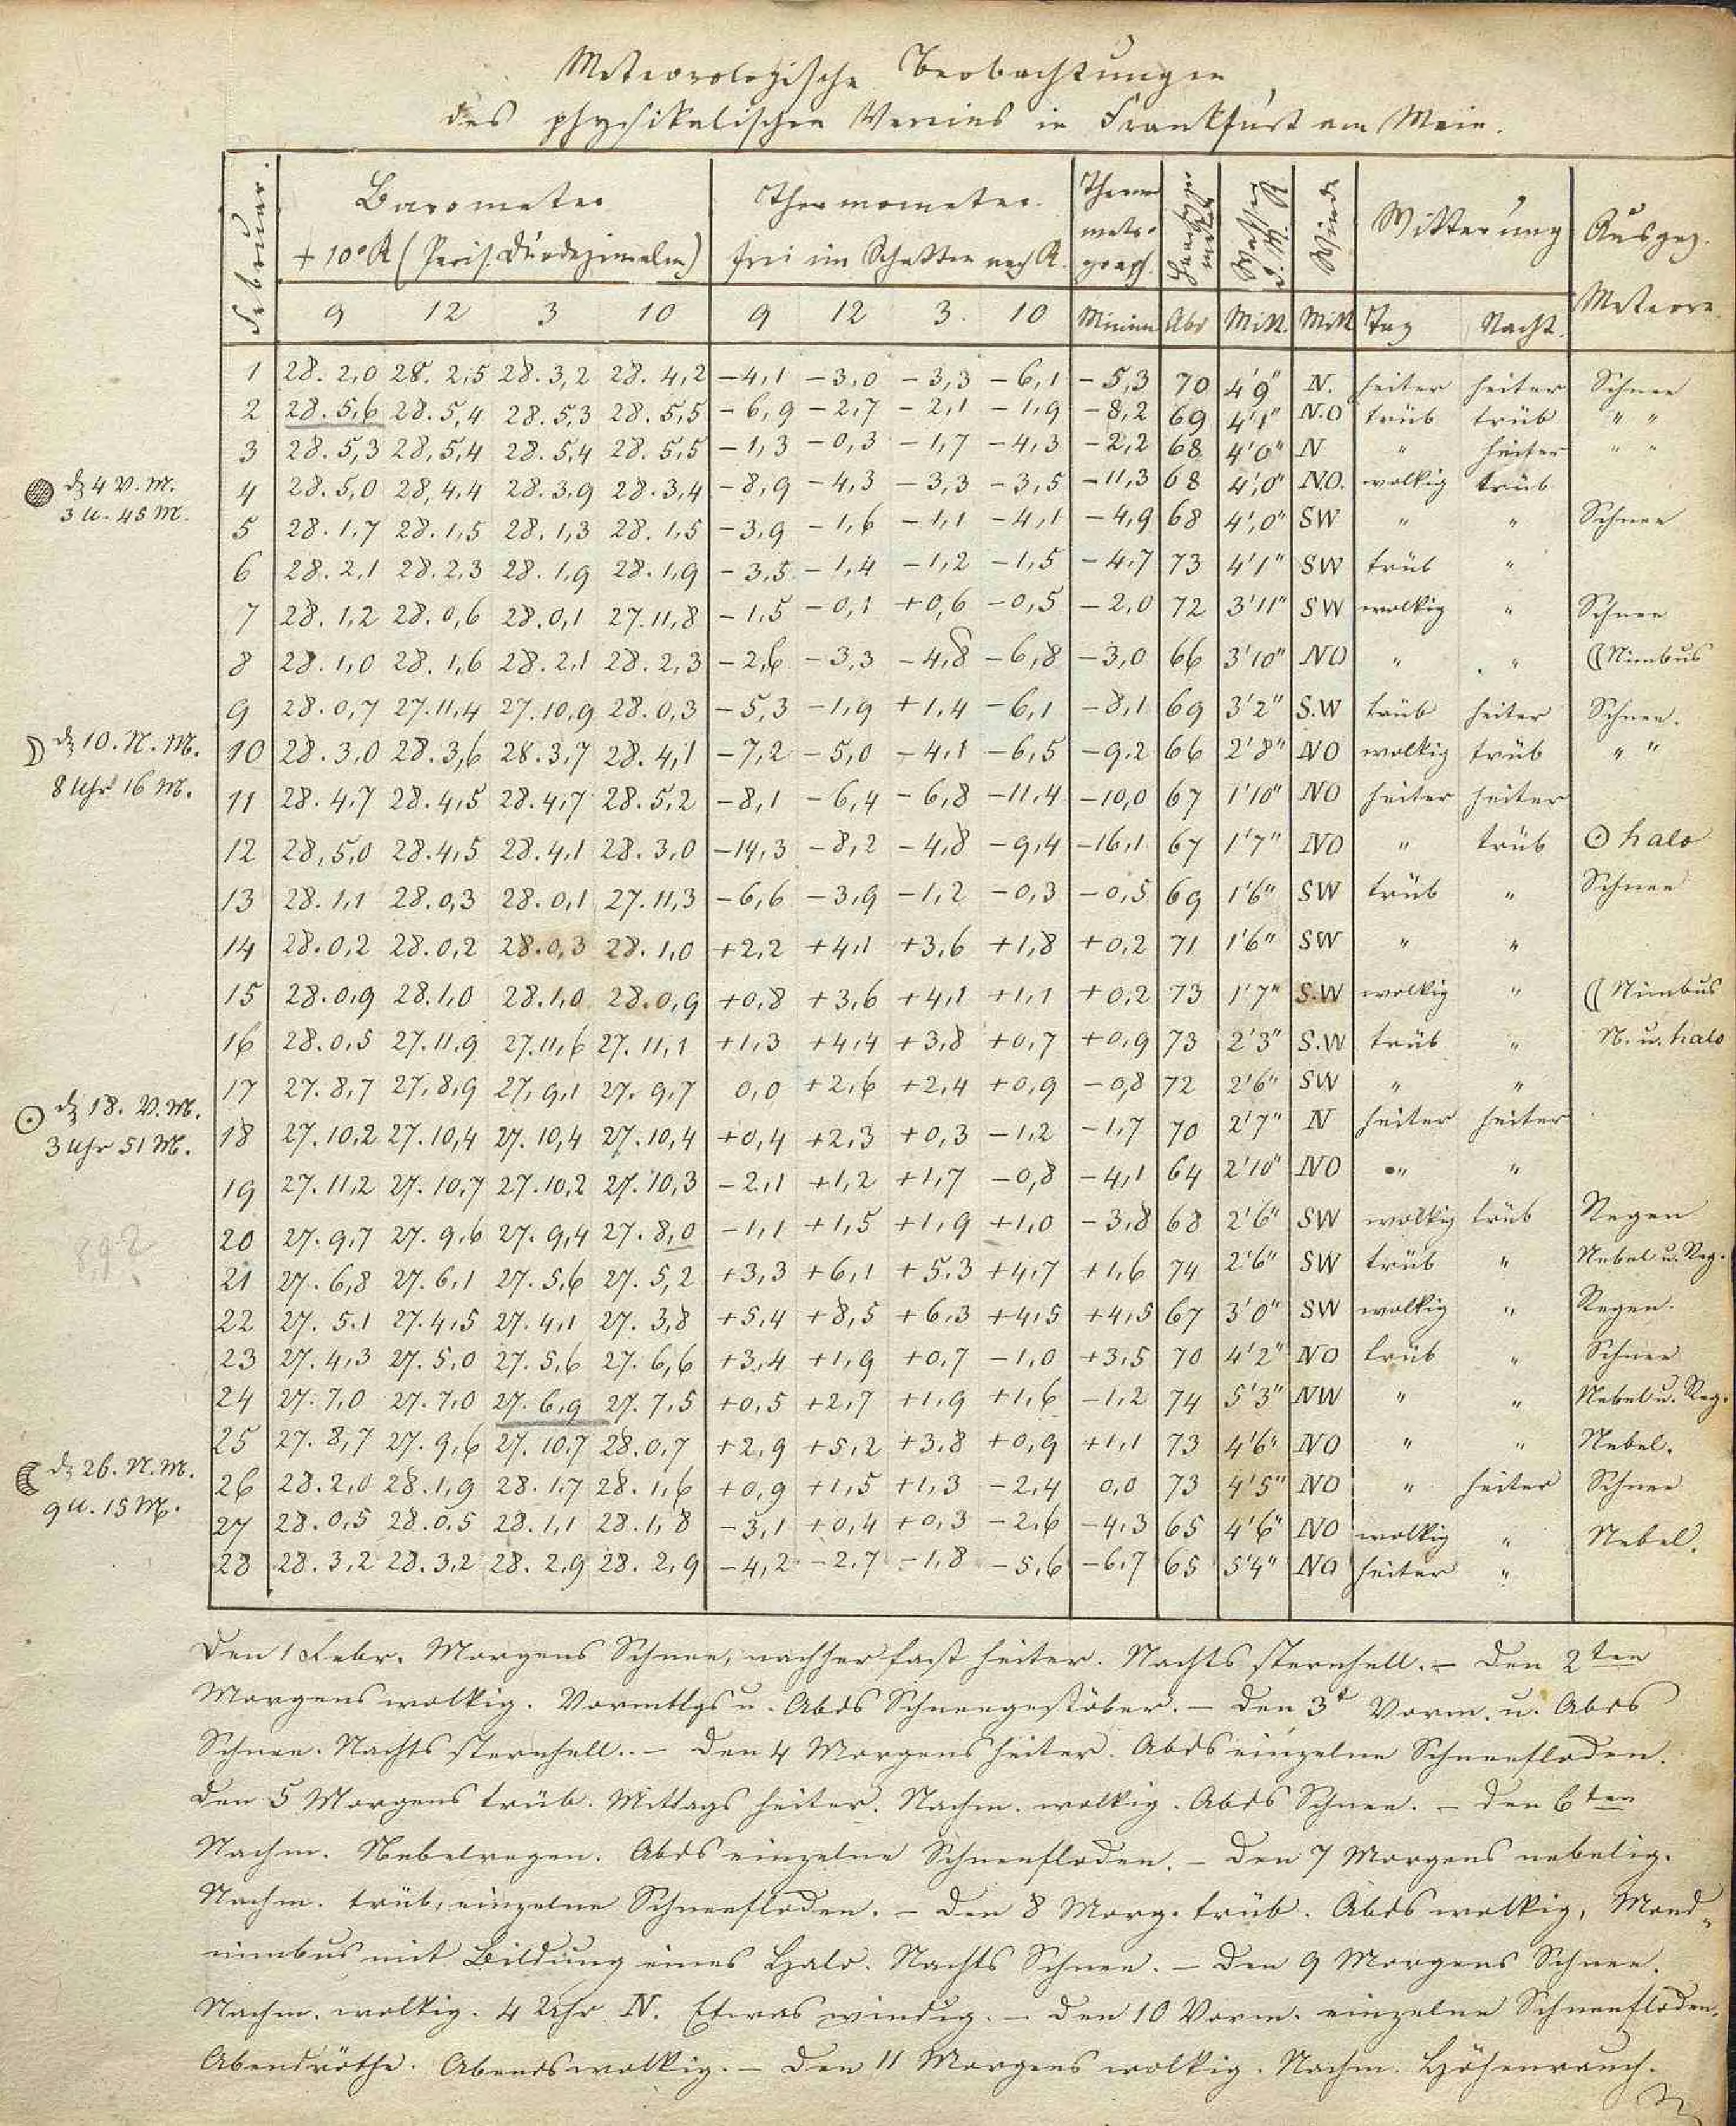 Meteorologische Beobachtungen
des physikalischen Vereins in Frankfurt am Main.
Februar. Barometer Thermometer. Thermo Winde Witterung Ausgez.
+ 10° R (Paris. Duodezimalm) frei im Schatten nach R. metro- graph. Meteore
9 12 3 10 9 12 3. 10 Minim Abd Mitt. Mitt Tag Nacht.
1 28. 2,0 28. 2,5 28. 3,2 28. 4,2 −4,1 −3,0 −3,3 −6,1 −5,3 70 4'9" N. heiter heiter Schnee
2 28. 5,6 28. 5,4 28. 5,3 28. 5,5 −6,9 −2,7 −2,1 −1,9 −8,2 69 4'1" N.O trüb trüb " "
3 28. 5,3 28. 5,4 28. 5,4 28. 5,5 −1,3 −0,3 −1,7 −4,3 −2,2 68 4'0" N " heiter " "
dz 4 V. M.
3 U. 45 M.
4 28. 5,0 28. 4,4 28. 3,9 28. 3,4 −8,9 −4,3 −3,3 −3,5 −11,3 68 4',0" NO. wolkig trüb
5 28. 1,7 28. 1,5 28. 1,3 28. 1,5 −3,9 −1,6 −1,1 −4,1 −4,9 68 4',0" SW " " Schnee
6 28. 2,1 28. 2,3 28. 1,9 28. 1,9 −3,5 −1,4 −1,2 −1,5 −4,7 73 4'1" SW trüb "
7 28. 1,2 28. 0,6 28. 0,1 27. 11,8 −1,5 −0,1 +0,6 −0,5 −2,0 72 3'11" SW wolkig " Schnee
8 28. 1,0 28. 1,6 28. 2,1 28. 2,3 −2,6 −3,3 −4,8 −6,8 −3,0 66 3'10" NO " " ☾ Nimbus
9 28. 0,7 27. 11,4 27. 10,9 28. 0,3 −5,3 −1,9 +1,4 −6,1 −8,1 69 3'2" S.W trüb heiter Schnee.
☽ dz 10. N. M.
8 Uhr 16 M.
10 28. 3,0 28. 3,6 28. 3,7 28. 4,1 −7,2 −5,0 −4,1 −6,5 −9,2 66 2'8" NO wolkig trüb " "
11 28. 4,7 28. 4,5 28. 4,7 28. 5,2 −8,1 −6,4 −6,8 −11,4 −10,0 67 1'10" NO heiter heiter
12 28. 5,0 28. 4,5 28. 4,1 28. 3,0 −14,3 −8,2 −4,8 −9,4 −16,1 67 1'7" NO " trüb ☉ halo
13 28. 1,1 28. 0,3 28. 0,1 27. 11,3 −6,6 −3,9 −1,2 −0,3 −0,5 69 1'6" SW trüb " Schnee
14 28. 0,2 28. 0,2 28. 0,3 28. 1,0 +2,2 +4,1 +3,6 +1,8 +0,2 71 1'6" SW " "
15 28. 0,9 28. 1,0 28. 1,0 28. 0,9 +0,8 +3,6 +4,1 +1,1 +0,2 73 1'7" S.W wolkig " ☾ Nimbus
16 28. 0,5 27. 11,9 27. 11,6 27. 11,1 +1,3 +4,4 +3,8 +0,7 +0,9 73 2'3" S.W trüb " N. u. halo
17 27. 8,7 27. 8,9 27. 9,1 27. 9,7 0,0 +2,6 +2,4 +0,9 −0,8 72 2'6" SW " "
☉ dz 18. V. M.
3 Uhr 51 M.
18 27. 10,2 27. 10,4 27. 10,4 27. 10,4 +0,4 +2,3 +0,3 −1,2 −1,7 70 2'7" N heiter heiter
19 27. 11,2 27. 10,7 27. 10,2 27. 10,3 −2,1 +1,2 +1,7 −0,8 −4,1 64 2'10" NO " "
892
20 27. 9,7 27. 9,6 27. 9,4 27. 8,0 −1,1 +1,5 +1,9 +1,0 −3,8 68 2'6" SW wolkig trüb Regen
21 27. 6,8 27. 6,1 27. 5,6 27. 5,2 +3,3 +6,1 +5,3 +4,7 +1,6 74 2'6" SW trüb " Nebel u. Reg.
22 27. 5,1 27. 4,5 27. 4,1 27. 3,8 +5,4 +8,5 +6,3 +4,5 +4,5 67 3'0" SW wolkig " Regen.
23 27. 4,3 27. 5,0 27. 5,6 27. 6,6 +3,4 +1,9 +0,7 −1,0 +3,5 70 4'2" NO trüb " Schnee
24 27. 7,0 27. 7,0 27. 6,9 27. 7,5 +0,5 +2,7 +1,9 +1,6 −1,2 74 5'3" NW " " Nebel u. Reg.
25 27. 8,7 27. 9,6 27. 10,7 28. 0,7 +2,9 +5,2 +3,8 +0,9 +1,1 73 4'6" NO " " Nebel.
☾ dz 26. N. M.
9 U. 15 M.
26 28. 2,0 28. 1,9 28. 1,7 28. 1,6 +0,9 +1,5 +1,3 −2,4 0,0 73 4'5" NO " heiter Schnee
27 28. 0,5 28. 0,5 28. 1,1 28. 1,8 −3,1 +0,4 +0,3 −2,6 −4,3 65 4'6" NO wolkig " Nebel.
28 28. 3,2 28. 3,2 28. 2,9 28. 2,9 −4,2 −2,7 −1,8 −5,6 −6,7 65 5'4" NO heiter "
Den 1 Febr. Morgens Schnee, nachher fast heiter. Nachts sternhell. – Den 2ten
Morgens wolkig. Vormttgs u. Abds Schneegestöber. – Den 3t Vorm. u. Abds
Schnee. Nachts sternhell. – Den 4 Morgens heiter. Abds einzelne Schneefloden.
Den 5 Morgens trüb. Mittags heiter. Nachm. wolkig. Abds Schnee. – Den 6ten
Nachm. Nebelregen. Abds einzelne Schneefloden. – Den 7 Morgens nebelig.
Nachm. trüb, einzelne Schneefloden. – Den 8 Morg. trüb. Abds wolkig, Mond-
nimbus mit Bildung eines Halo. Nachts Schnee. – Den 9 Morgens Schnee.
Nachm. wolkig. 4 Uhr N. Etwas windig. – Den 10 Vorm. einzelne Schneefloden.
Abendröthe. Abends wolkig. – Den 11 Morgens wolkig. Nachm. Höhenrauch.